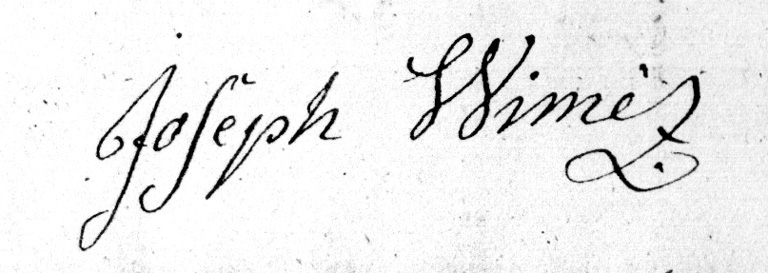 Joseph Wimez